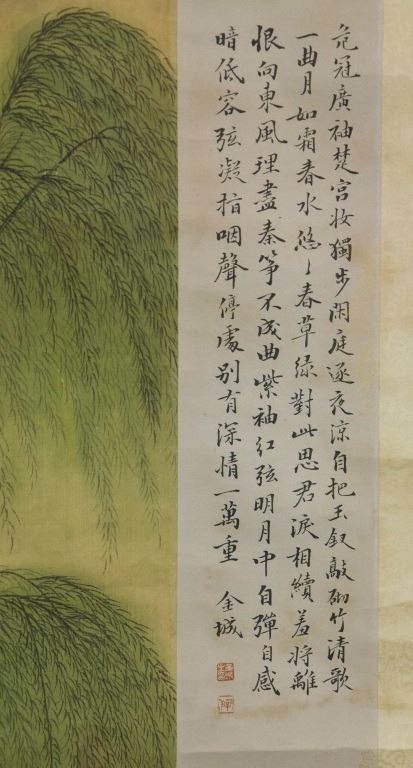 危冠廣袖楚宮妝獨步閑庭逐夜涼自把玉釵敲砌竹清歌
一曲月如霜春水悠〻春草綠對此思君淚相續羞將離
恨向東風理盡秦箏不成曲紫袖紅弦明月中自彈自感
暗低容弦凝指咽聲停處別有深情一萬重
金城